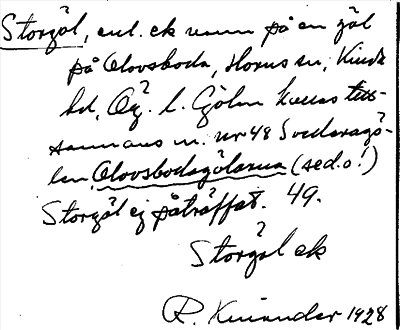 Storgöl, enl. ek namn på en göl
på Olovsboda, Horns sn, Kinda
hd, Ög. l. Gölen kallas till-
sammans m. nr 48 Svedersgö-
len Olovsbodagölarna (se d. o!)
Storgöl ej påträffat. 49.
Storgöl ek
R. Kinander 1928